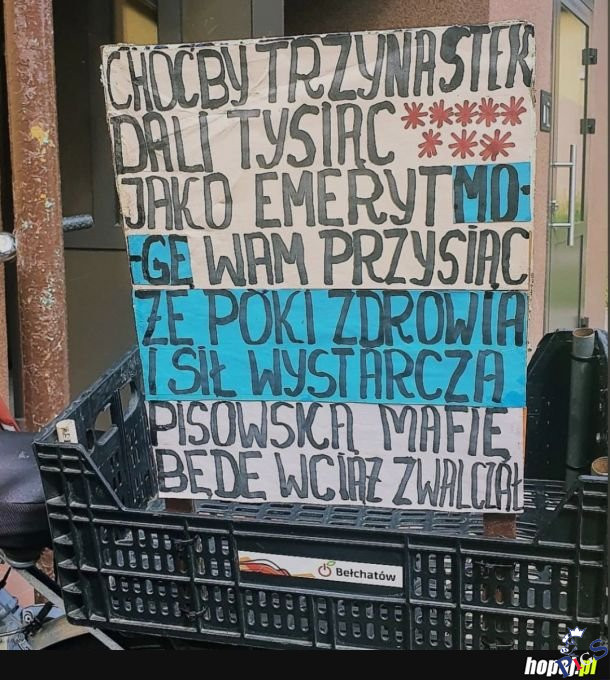 CHOĆBY TRZYNASTEK
DALI TYSIĄC ********
JAKO EMERYT MO-
-GĘ WAM PRZYSIĄC
ŻE PÓKI ZDROWIA
I SIŁ WYSTARCZA
PISOWSKĄ MAFIĘ
BĘDĘ WCIĄŻ ZWALCZAŁ
Bełchatów
hopaj.pl